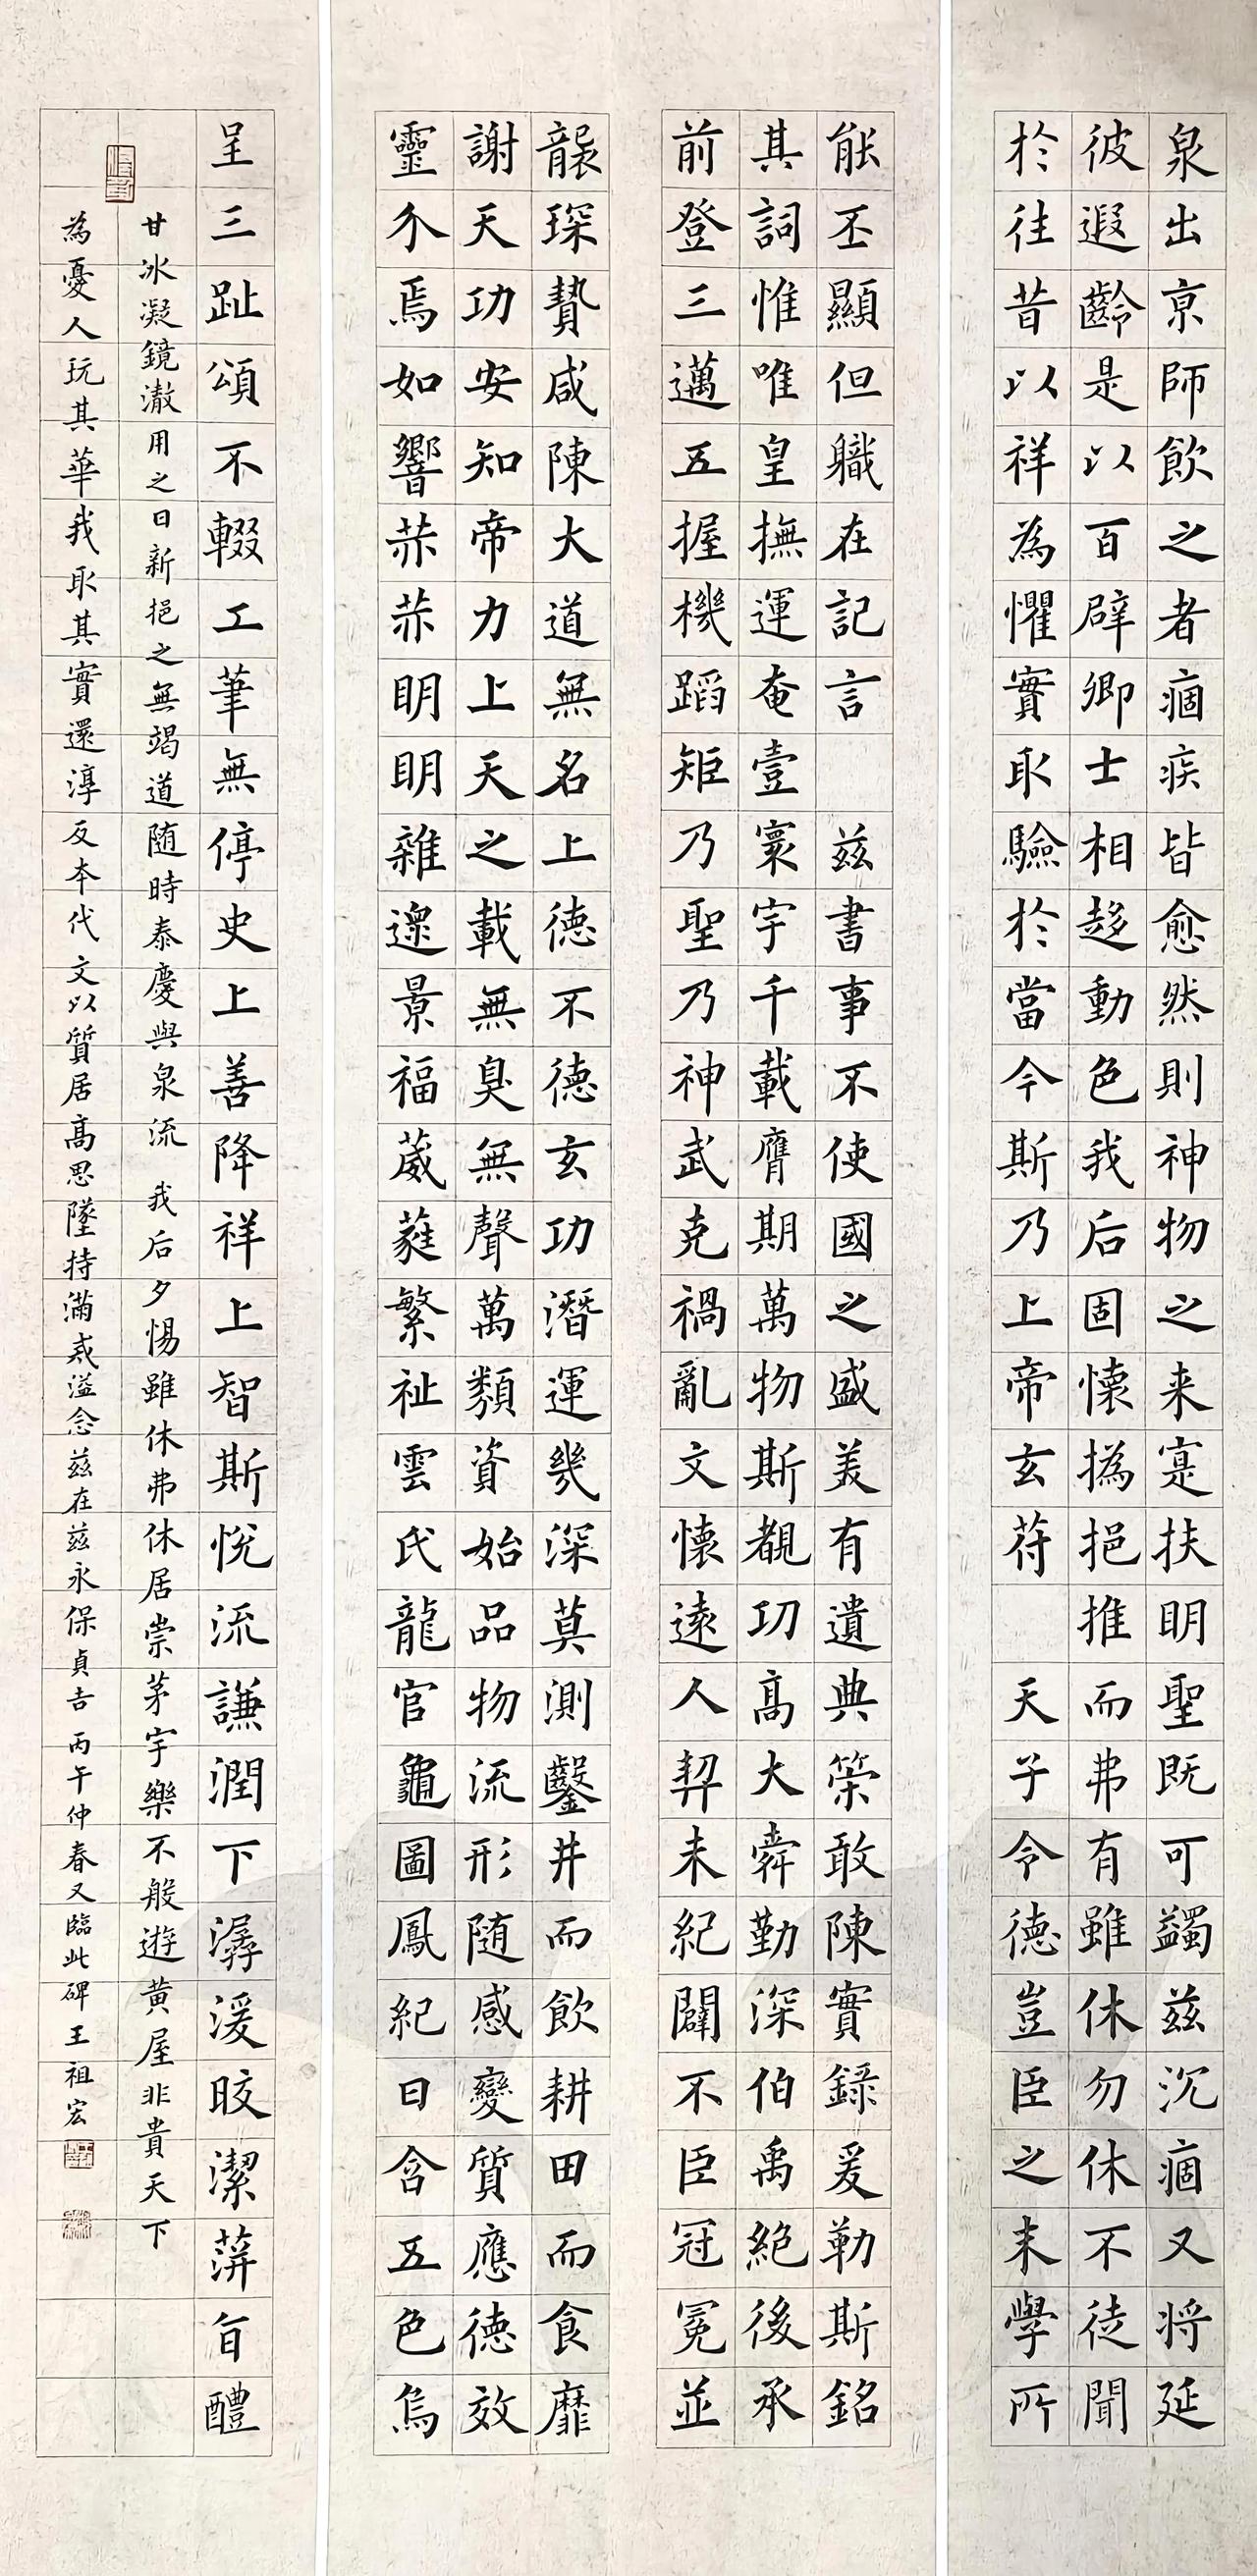 泉出京師飲之者痼疾皆愈然則神物之来寔扶明聖既可蠲兹沉痼又将延
彼遐齡是以百辟卿士相趍動色我后固懷撝挹推而弗有雖休勿休不徒聞
於往昔以祥為懼實取驗於當今斯乃上帝玄苻 天子令德豈臣之末學所
能丕顯但職在記言 兹書事不使國之盛美有遺典策敢陳實錄爰勒斯銘
其詞惟唯皇撫運奄壹寰宇千載膺期萬物斯覩功高大舜勤深伯禹絶後承
前登三邁五握機蹈矩乃聖乃神武克禍亂文懷遠人契未紀闢不臣冠冕並
襲琛贄咸陳大道無名上德不德玄功潛運幾深莫測鑿井而飲耕田而食靡
謝天功安知帝力上天之載無臭無聲萬類資始品物流形随感變質應德效
靈介焉如響赫赫明明雜遝景福葳蕤繁祉雲氏龍官龜圖鳳紀日含五色烏
呈三趾頌不輟工筆無停史上善降祥上智斯悅流謙潤下潺湲晈潔蓱旨醴
甘冰凝鏡澈用之日新挹之無竭道随時泰慶與泉流 我后夕惕雖休弗休居崇茅宇樂不般遊黃屋非貴天下
為憂人玩其華我取其實還淳反本代文以質居高思墜持滿戒溢念兹在兹永保貞吉 丙午仲春又臨此碑王祖宏